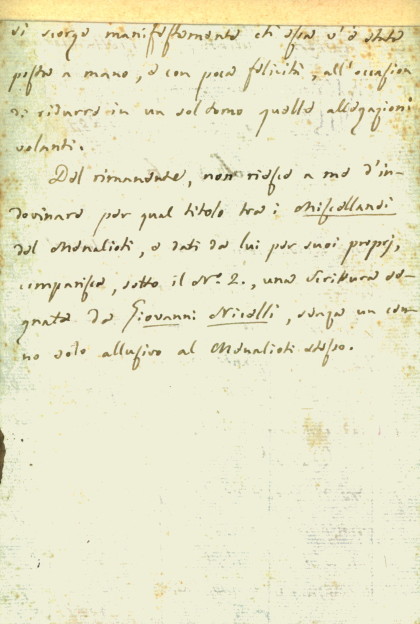 si scorge manifestamente ch'essa v'è stata
posta a mano, e con poca felicità, all'occasion
di ridurre in un sol tomo quelle allegazioni
volanti.
Del rimanente, non riesce a me d'in-
dovinare per qual titolo tra i Miscellandi
del Menalioti, e dati da lui per suoi proprj,
comparisca, sotto il N.º 2., una Scrittura se-
gnata da Giovanni Nicolli, senza un cen-
no solo allusivo al Menalioti stesso.